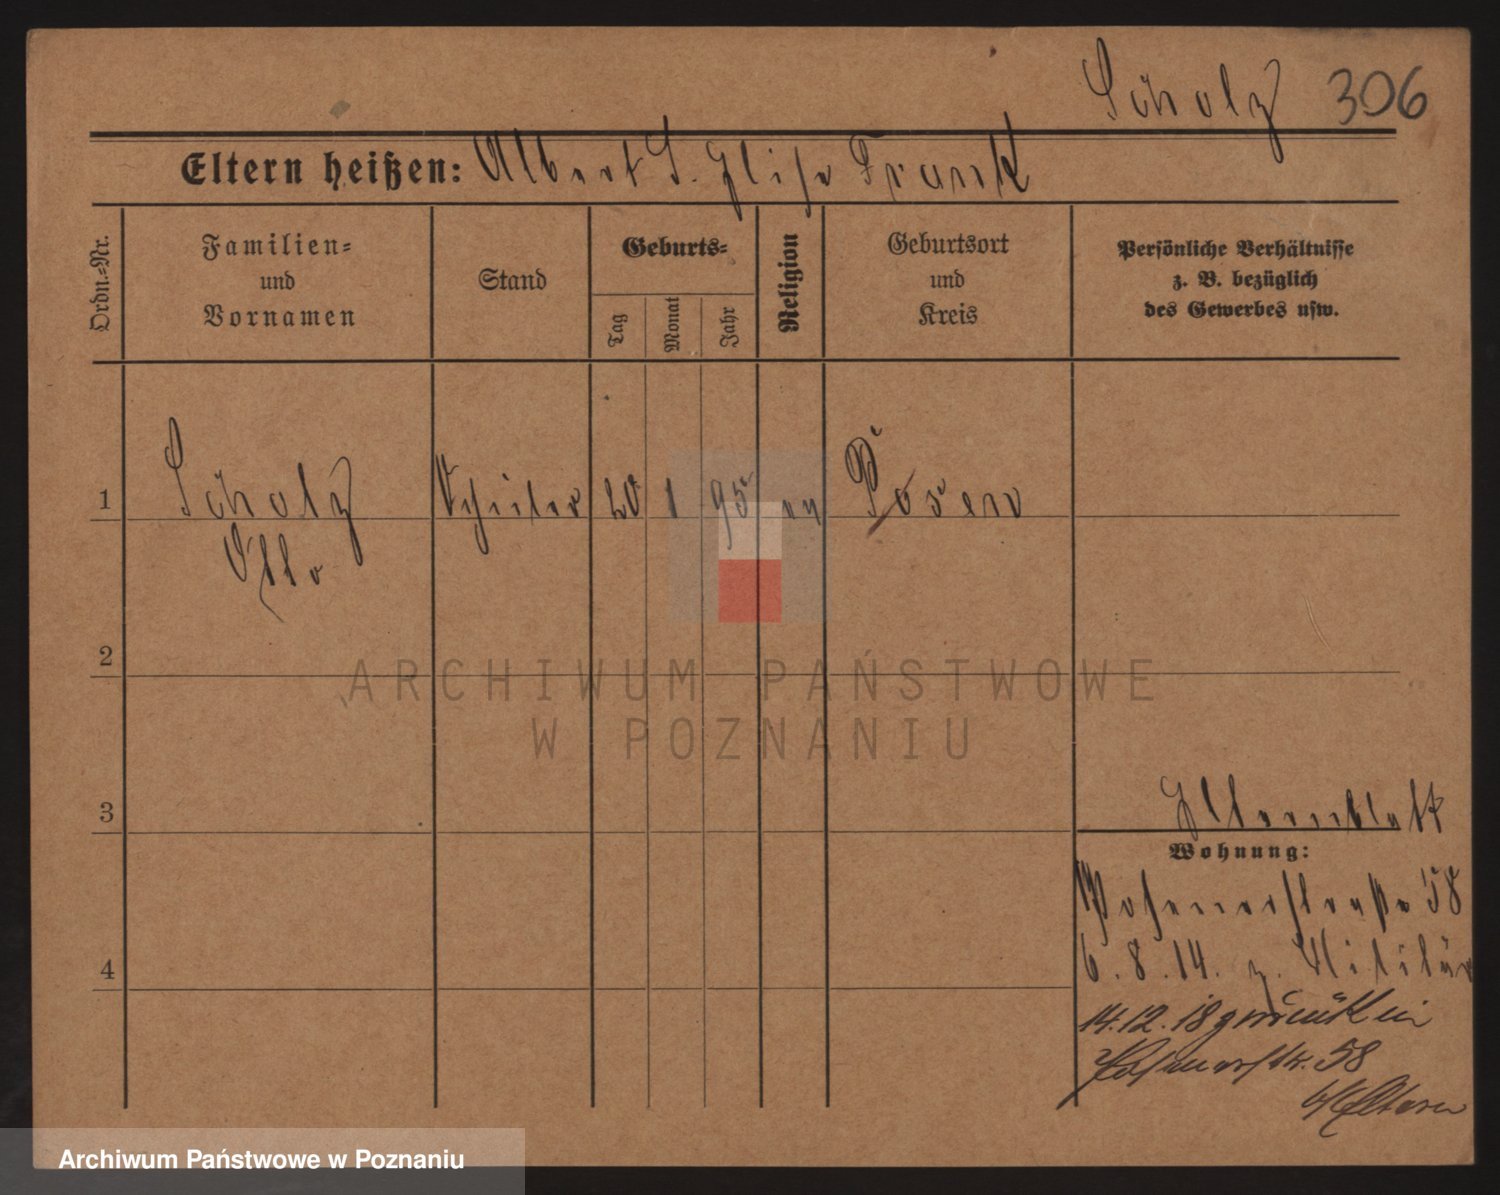 Scholz 306
Eltern heißen: Albert S. Elise Frank
Ordn.-Nr.
Familien-
und
Vornamen
Stand
Geburts-
Tag
Monat
Jahr
Religion
Geburtsort
und
Kreis
Persönliche Verhältnisse
z. B. bezüglich
des Gewerbes usw.
1 Scholz Schüler 20 1 95 ev Posen
Otto
2
3
4
Elternblatt
Wohnung:
Posenerstraße 58
6.8.14. z. Militär
14.12.18 zurück in
Posenerstr. 58
b/Eltern
ARCHIWUM PAŃSTWOWE
W POZNANIU
Archiwum Państwowe w Poznaniu